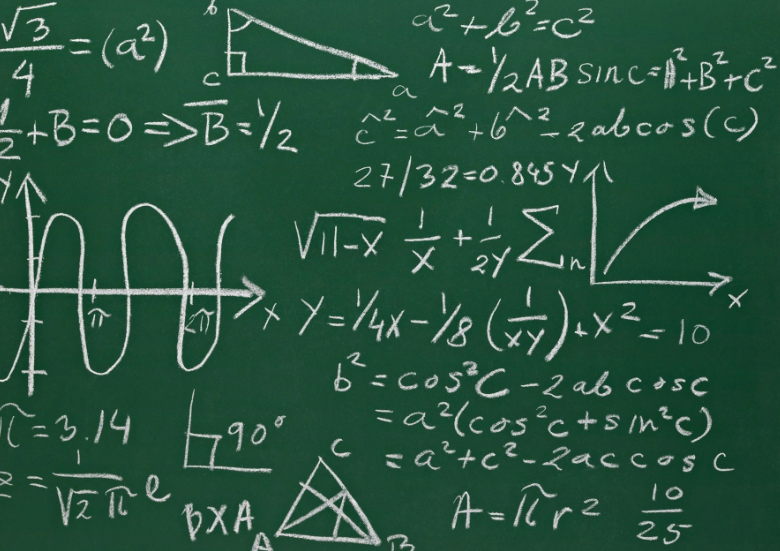 √3/4 = (a²)
b
c
a
a² + b² = c²
A = 1/2 AB sin c = A² + B² + c²
1/2 + B = 0 => B = 1/2
ĉ² = â² + b^² - 2abcos(c)
27/32 = 0.845
Y
x
Y
π
2π
x
√11-x 1/x + 1/2Y Σn
Y = 1/4x - 1/8 (1/xy) + x² = 10
b² = cos²C - 2ab cosc
= a²(cos²c + sin²c)
= a² + c² - 2ac cos c
π = 3.14
90°
= 1/√2π e
BXA
C
A
B
A = πr²
10/25